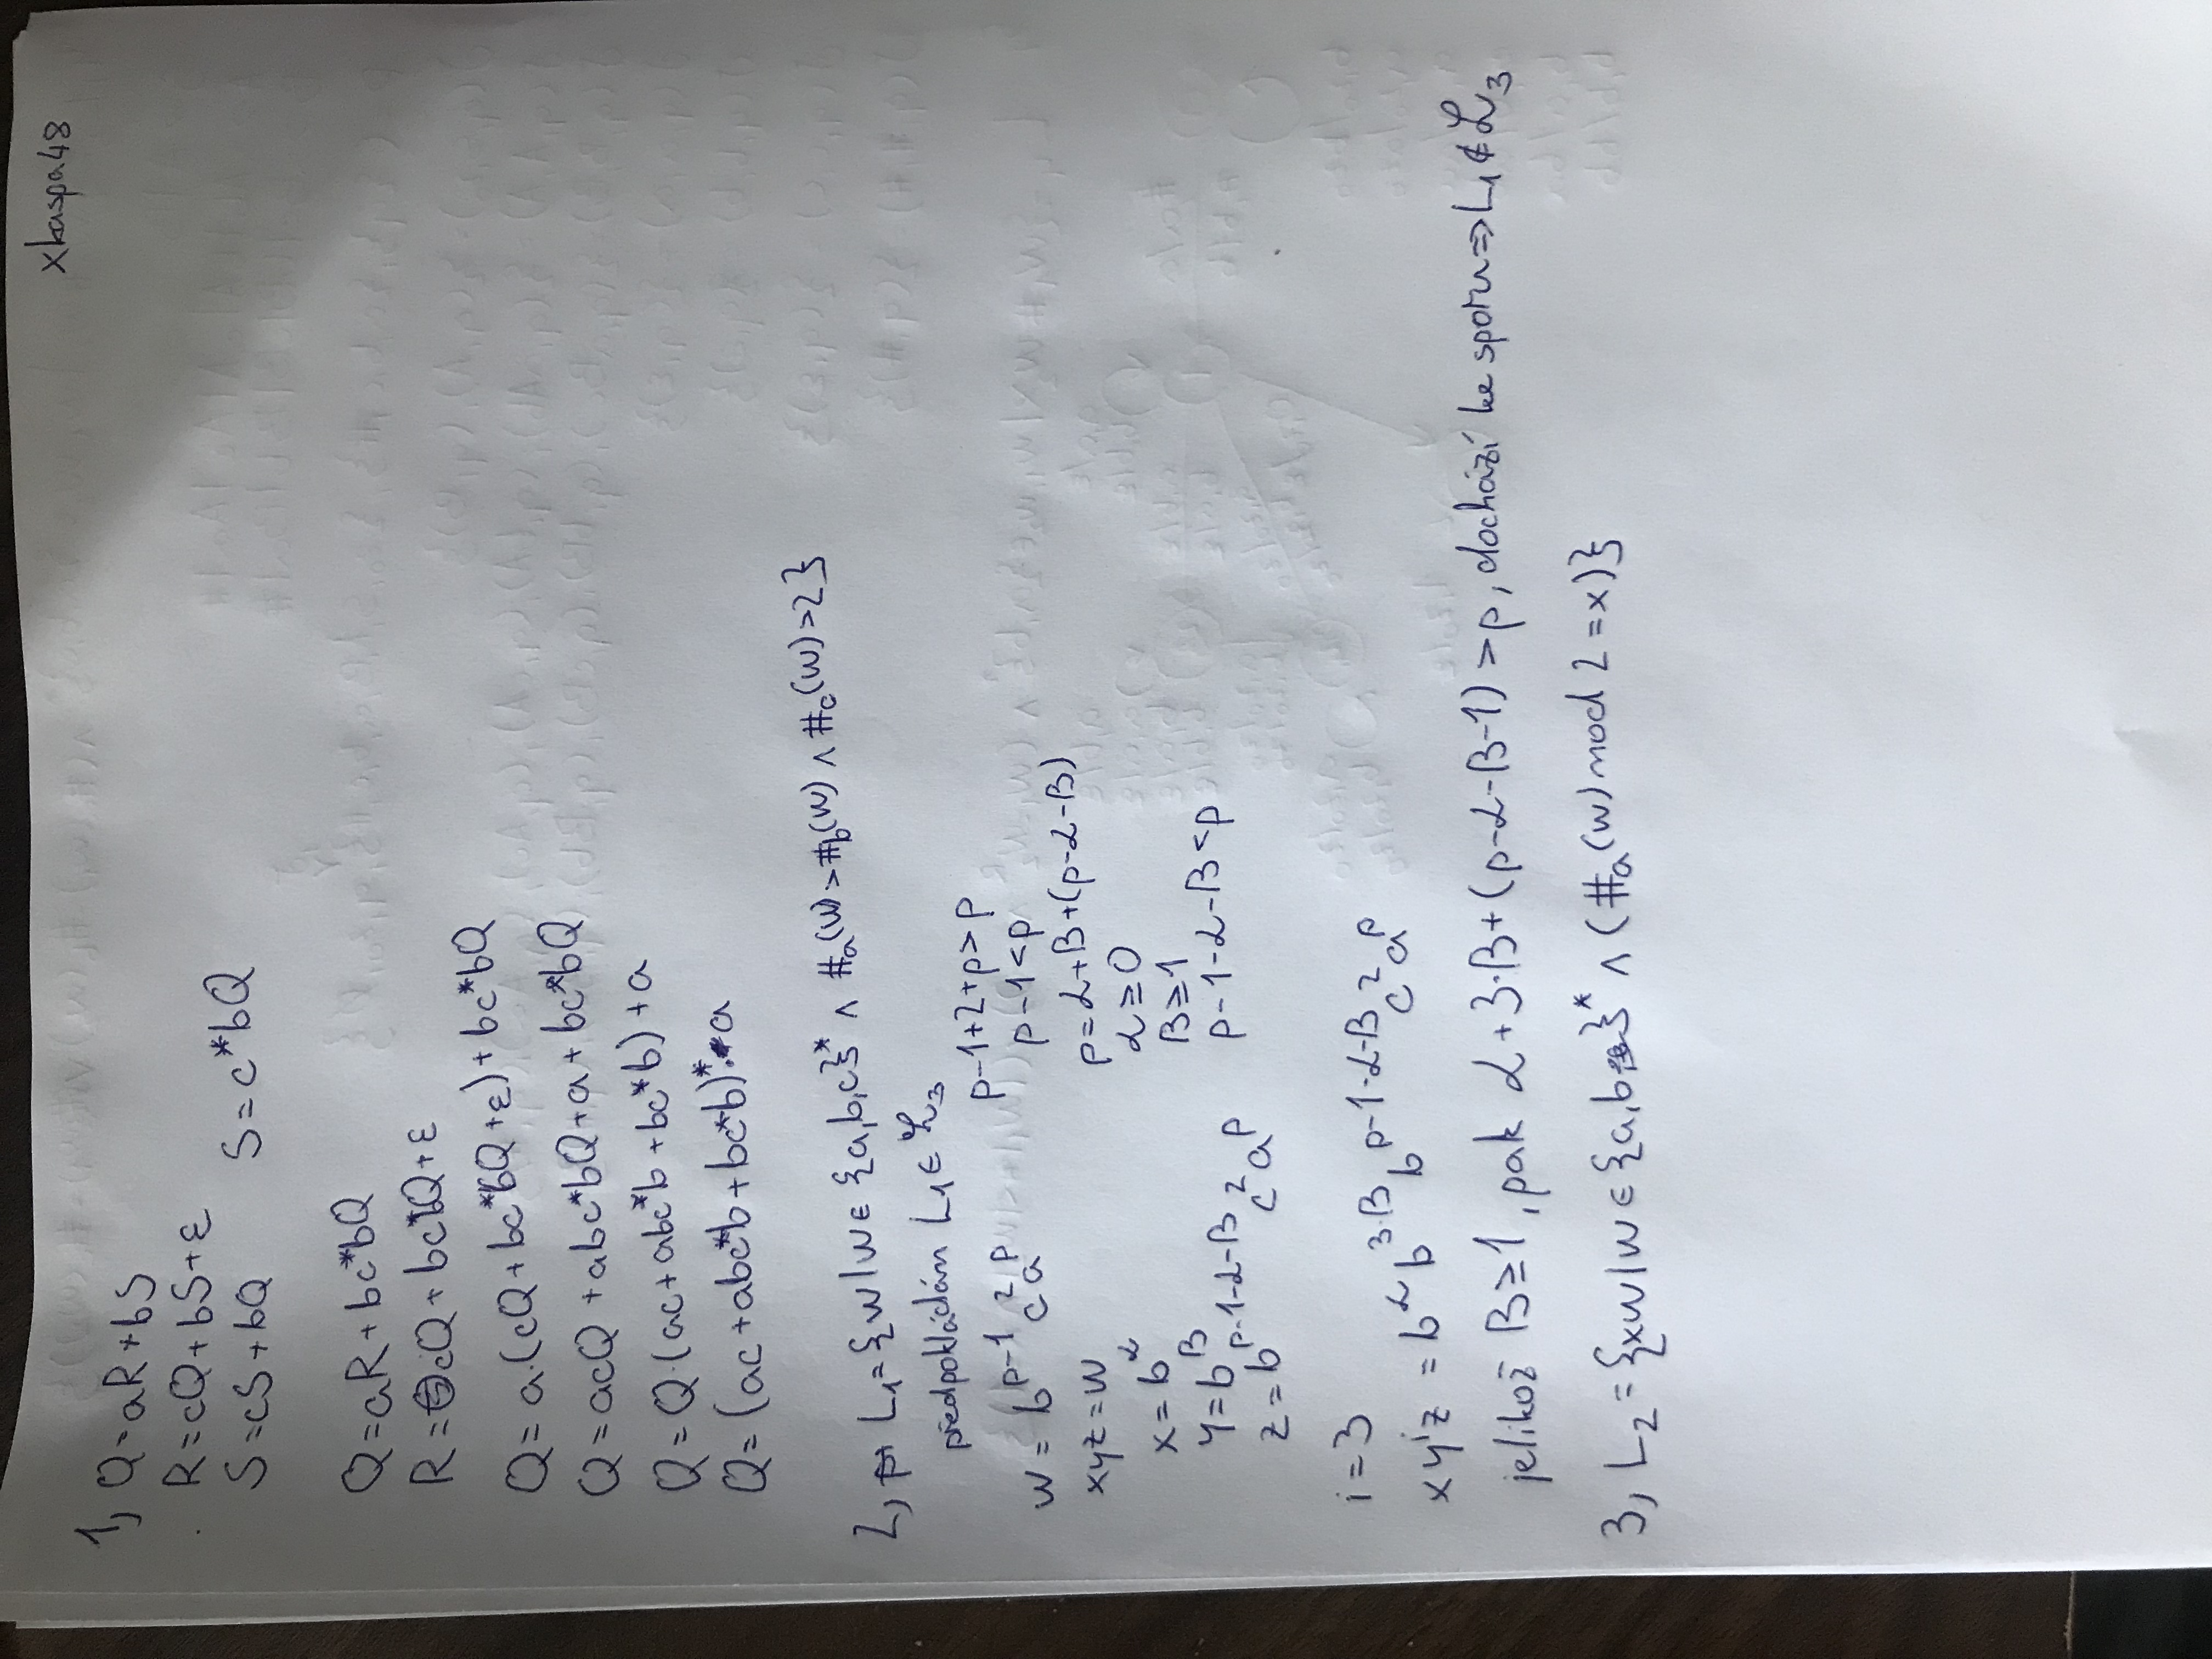 xkaspa48
1, Q=aR+bS
R=cQ+bS+ε
S=cS+bQ S=c*bQ
Q=aR+bc*bQ
R=cQ+bc*bQ+ε
Q=a.(cQ+bc*bQ+ε)+bc*bQ
Q=acQ+abc*bQ+a+bc*bQ
Q=Q.(ac+abc*b+bc*b)+a
Q=(ac+abc*b+bc*b)*.a
2, L₁={w|w∈{a,b,c}* ∧ #a(w)>#b(w) ∧ #c(w)>2}
předpokládám L₁∈ℒ₃
w=b^{p-1}c²a^p p-1+2+p>p
p-1<p
xyz=w p=α+β+(p-α-β)
x=b^α α≥0
y=b^β β≥1
z=b^{p-1-α-β}c²a^p p-1-α-β<p
i=3
xyⁱz=b^α b^{3·β} b^{p-1-α-β}c²a^p
jelikož β≥1, pak α+3·β+(p-α-β-1)>p, dochází ke sporu⇒L₁∉ℒ₃
3, L₂={xw|w∈{a,b}* ∧ (#a(w) mod 2=x)}